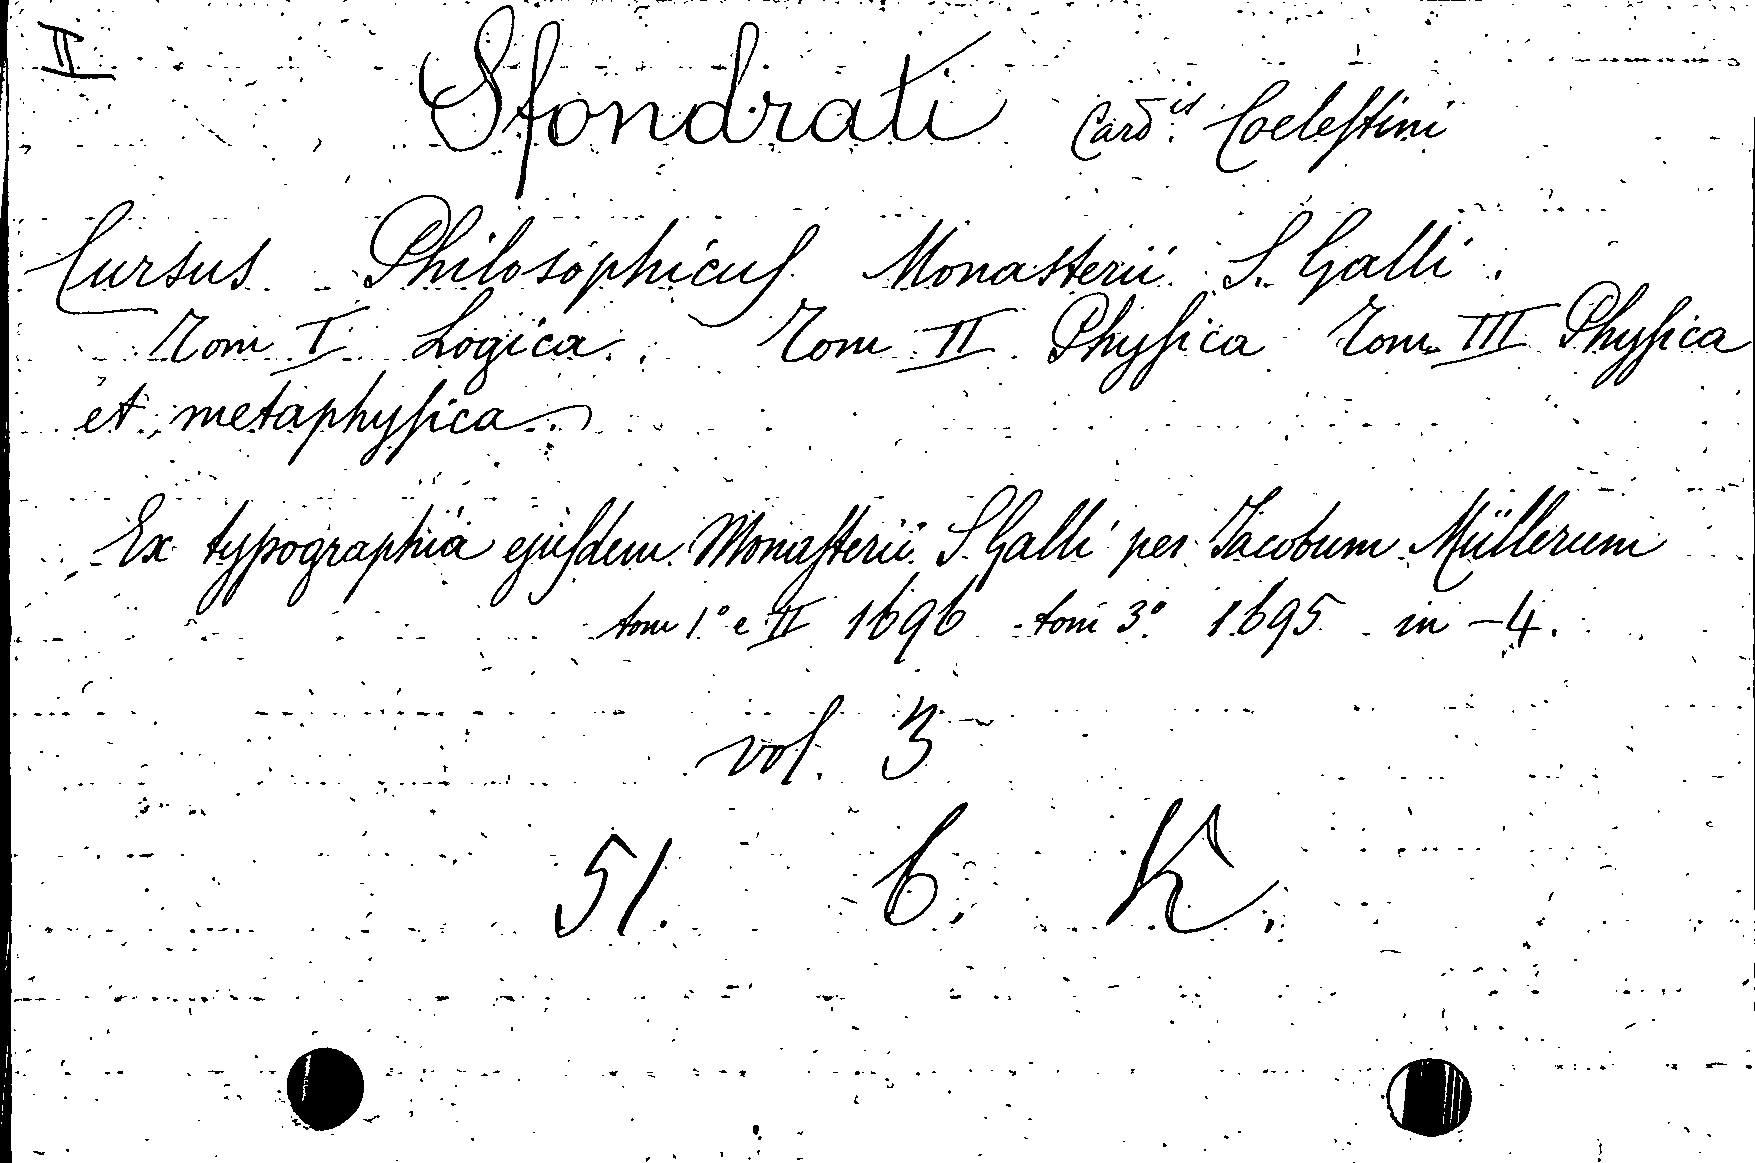 II
Sfondrati Card.is Coelestini
Cursus Philosophicus Monasterii S. Galli.
Tom I Logica. Tom II Physica Tom. III Physica
et metaphysica
Ex typographia ejusdem Monasterii S. Galli per Jacobum Müllerum
tom 1.° e II 1696 tom 3.° 1695 in-4.
vol. 3
51. 6. K.